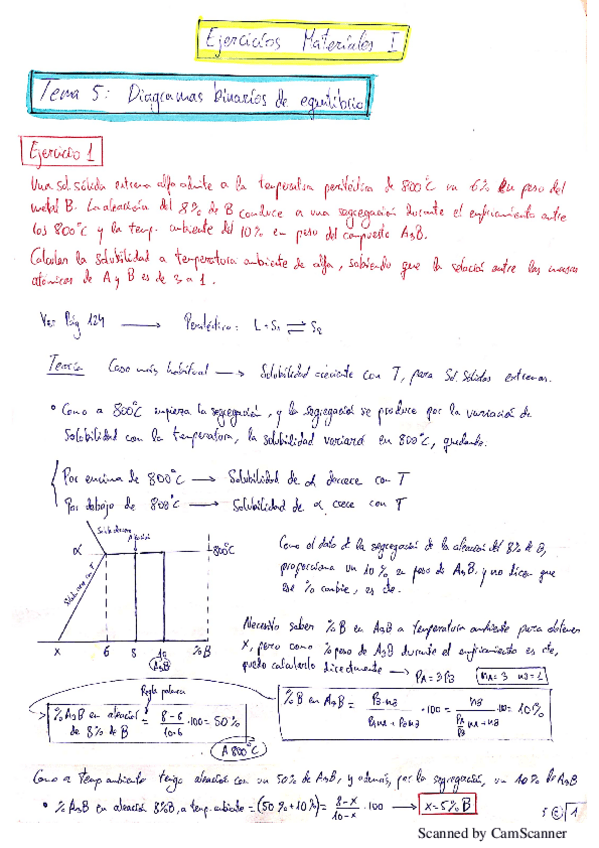 Ejercicios Materiales I
Tema 5: Diagramas binarios de equilibrio
Ejercicio 1
Una sol. sólida extrema alfa admite a la temperatura peritéctica de 800°C un 6% en peso del
metal B. La aleación del 8% de B conduce a una segregación durante el enfriamiento entre
los 800°C y la temp. ambiente del 10% en peso del compuesto A₃B.
Calcular la solubilidad a temperatura ambiente de alfa, sabiendo que la relación entre las masas
atómicas de A y B es de 3 a 1.
Ver Pág 124 → Peritéctico: L + S₁ ⇌ S₂
Teoría Caso más habitual → Solubilidad creciente con T, para Sol. Sólidas extremas.
• Como a 800°C empieza la segregación, y la segregación se produce por la variación de
solubilidad con la temperatura, la solubilidad variará en 800°C, quedando.
Por encima de 800°C → Solubilidad de α decrece con T
Por debajo de 800°C → Solubilidad de α crece con T
α
800°C
x 6 8 10 %B
A₃B
Como el dato de la segregación de la aleación del 8% de B,
proporciona un 10% en peso de A₃B y no dicen que
ese % cambie, es cte.
Necesito saber %B en A₃B a temperatura ambiente para obtener
x, pero como %peso de A₃B durante el enfriamiento es cte,
puedo calcularlo directamente → PA = 3PB nA = 3 nB = 1
Regla palanca
%A₃B en aleación de 8% de B = (8-6)/(10-6) · 100 = 50%
A 800°C
%B en A₃B = PB·nB/(PA·nA + PB·nB) · 100 = nB/((PA/PB)·nA + nB) · 100 = 10%
Como a temp ambiente tengo aleación con un 50% de A₃B, y además, por la segregación, un 10% de A₃B
• %A₃B en aleación 8%B, a temp. ambiente = (50% + 10%) = (8-x)/(10-x) · 100 → x = 5% B
1
Scanned by CamScanner